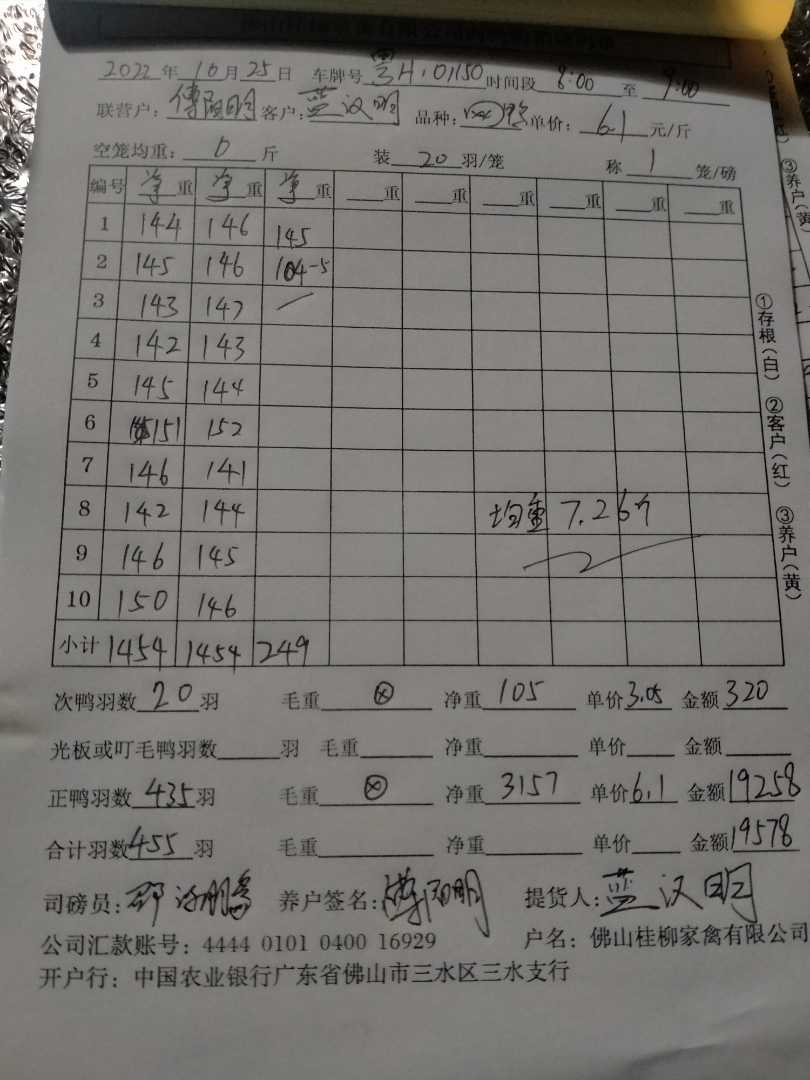 2022年10月25日 车牌号粤H·01150时间段8:00至9:00
联营户:傅阳明 客户:蓝汉明 品种: 单价:6.1元/斤
空笼均重:0斤 装20羽/笼 称1笼/磅
编号 净重 净重 净重 重 重 重 重 重 重
1 144 146 145
2 145 146 104-5
3 143 147 /
4 142 143
5 145 144
6 151 152
7 146 141
8 142 144 均重 7.26斤
9 146 145
10 150 146
小计 1454 1454 249
次鸭羽数20羽 毛重⊗ 净重105 单价3.05 金额320
光板或叮毛鸭羽数 羽 毛重 净重 单价 金额
正鸭羽数435羽 毛重⊗ 净重3157 单价6.1 金额19258
合计羽数455羽 毛重 净重 单价 金额19578
司磅员: 养户签名:傅阳明 提货人:蓝汉明
公司汇款账号:4444 0101 0400 16929 户名:佛山桂柳家禽有限公司
开户行:中国农业银行广东省佛山市三水区三水支行
①存根(白) ②客户(红) ③养户(黄)
③养户(黄)